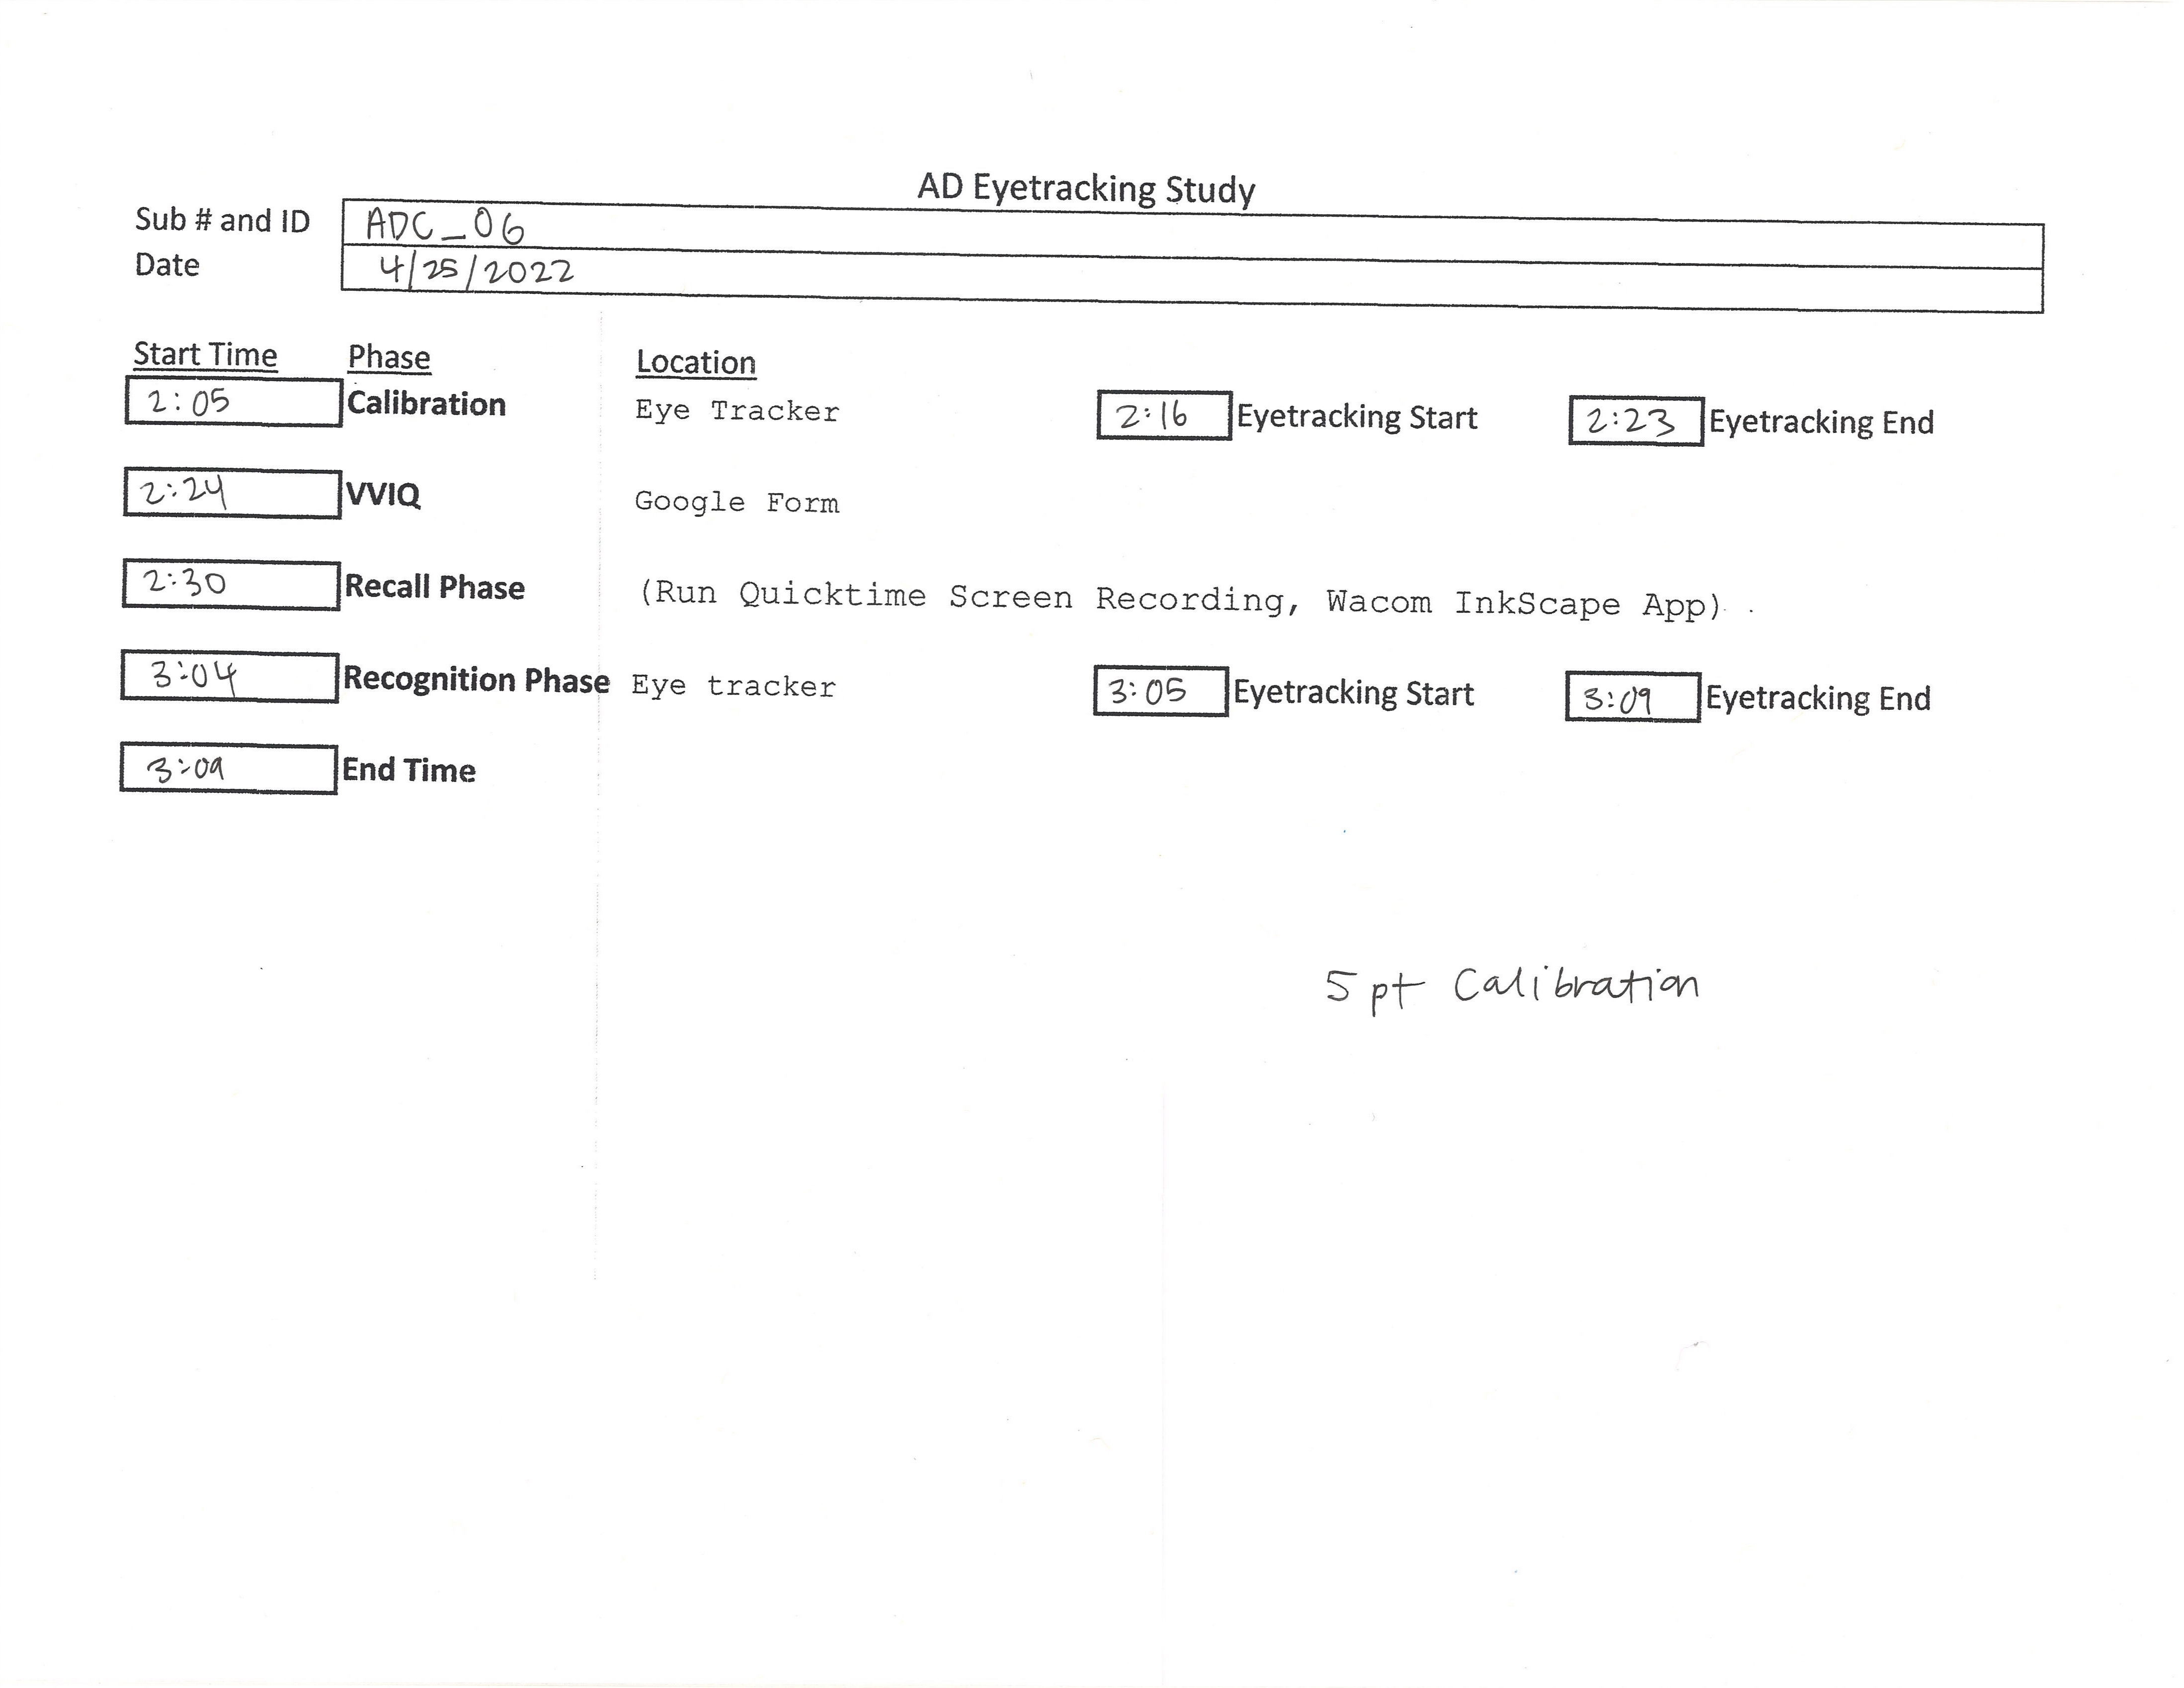 AD Eyetracking Study
Sub # and ID ADC_06
Date 4/25/2022
Start Time Phase Location
2:05 Calibration Eye Tracker 2:16 Eyetracking Start 2:23 Eyetracking End
2:24 VVIQ Google Form
2:30 Recall Phase (Run Quicktime Screen Recording, Wacom InkScape App)
3:04 Recognition Phase Eye tracker 3:05 Eyetracking Start 3:09 Eyetracking End
3:09 End Time
5 pt Calibration